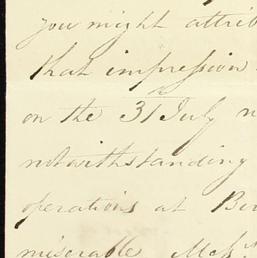 you might attrib
that impression
on the 31 July n
notwithstanding
operations at Bir
miserable Mess.rs